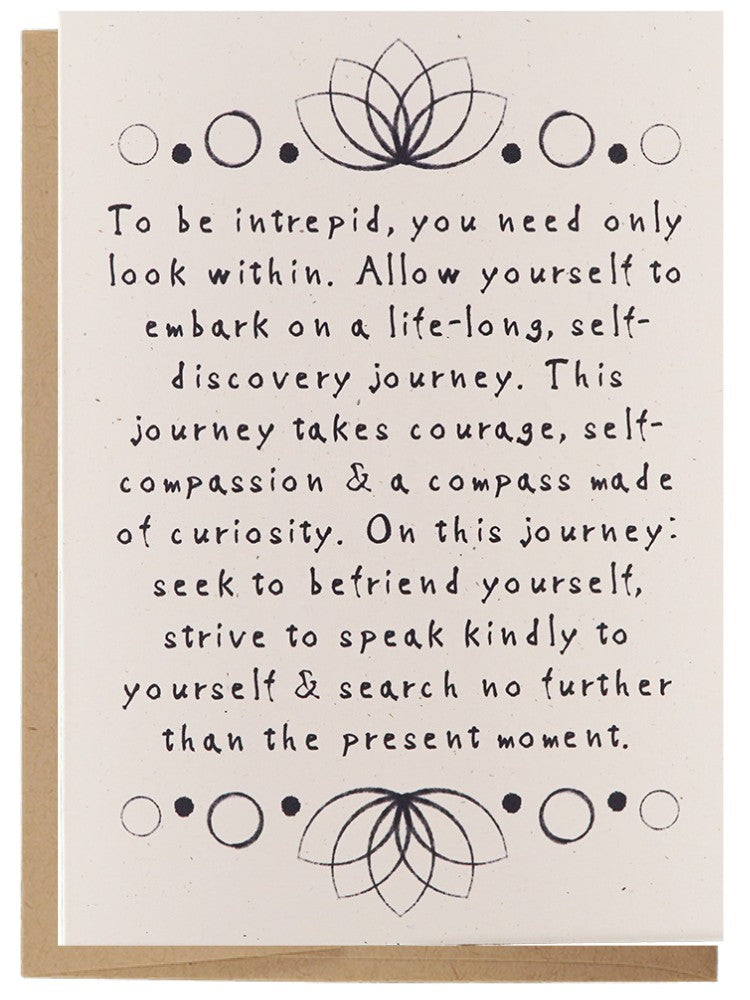 To be intrepid, you need only
look within. Allow yourself to
embark on a life-long, self-
discovery journey. This
journey takes courage, self-
compassion & a compass made
of curiosity. On this journey:
seek to befriend yourself,
strive to speak kindly to
yourself & search no further
than the present moment.